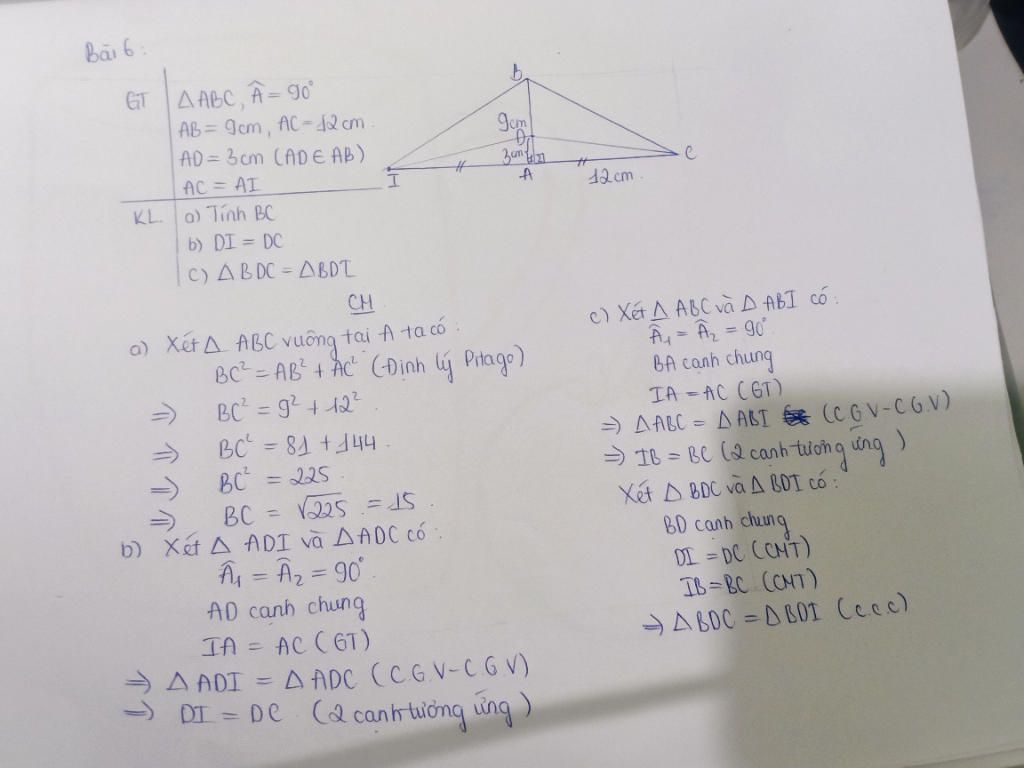 Bài 6:
GT
ΔABC, Â = 90°
AB = 9cm, AC = 12cm.
AD = 3cm (AD ∈ AB)
AC = AI
KL.
a) Tính BC
b) DI = DC
c) ΔBDC = ΔBDI
B
9cm
D
3cm
I
A
12cm.
C
CM
a) Xét Δ ABC vuông tại A ta có:
BC² = AB² + AC² (Định lý Pitago)
⇒ BC² = 9² + 12²
⇒ BC² = 81 + 144.
⇒ BC² = 225.
⇒ BC = √225 = 15.
b) Xét Δ ADI và ΔADC có:
Â₁ = Â₂ = 90°.
AD cạnh chung
IA = AC (GT)
⇒ Δ ADI = Δ ADC (C.G.V-C.G.V)
⇒ DI = DC (2 cạnh tương ứng)
c) Xét Δ ABC và Δ ABI có:
Â₁ = Â₂ = 90°
BA cạnh chung
IA = AC (GT)
⇒ ΔABC = ΔABI (C.G.V-C.G.V)
⇒ IB = BC (2 cạnh tương ứng)
Xét Δ BDC và Δ BDI có:
BD cạnh chung
DI = DC (CMT)
IB = BC (CMT)
⇒ ΔBDC = ΔBDI (c.c.c)